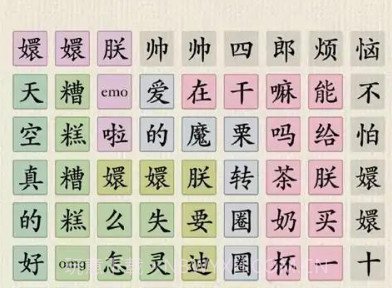 嬛嬛朕帅帅四郎烦恼
天糟emo爱在干嘛能不
空糕啦的魔栗吗给怕
真糟嬛嬛朕转茶朕嬛
的糕么失要圈奶买嬛
好omg怎灵迪圈杯一十